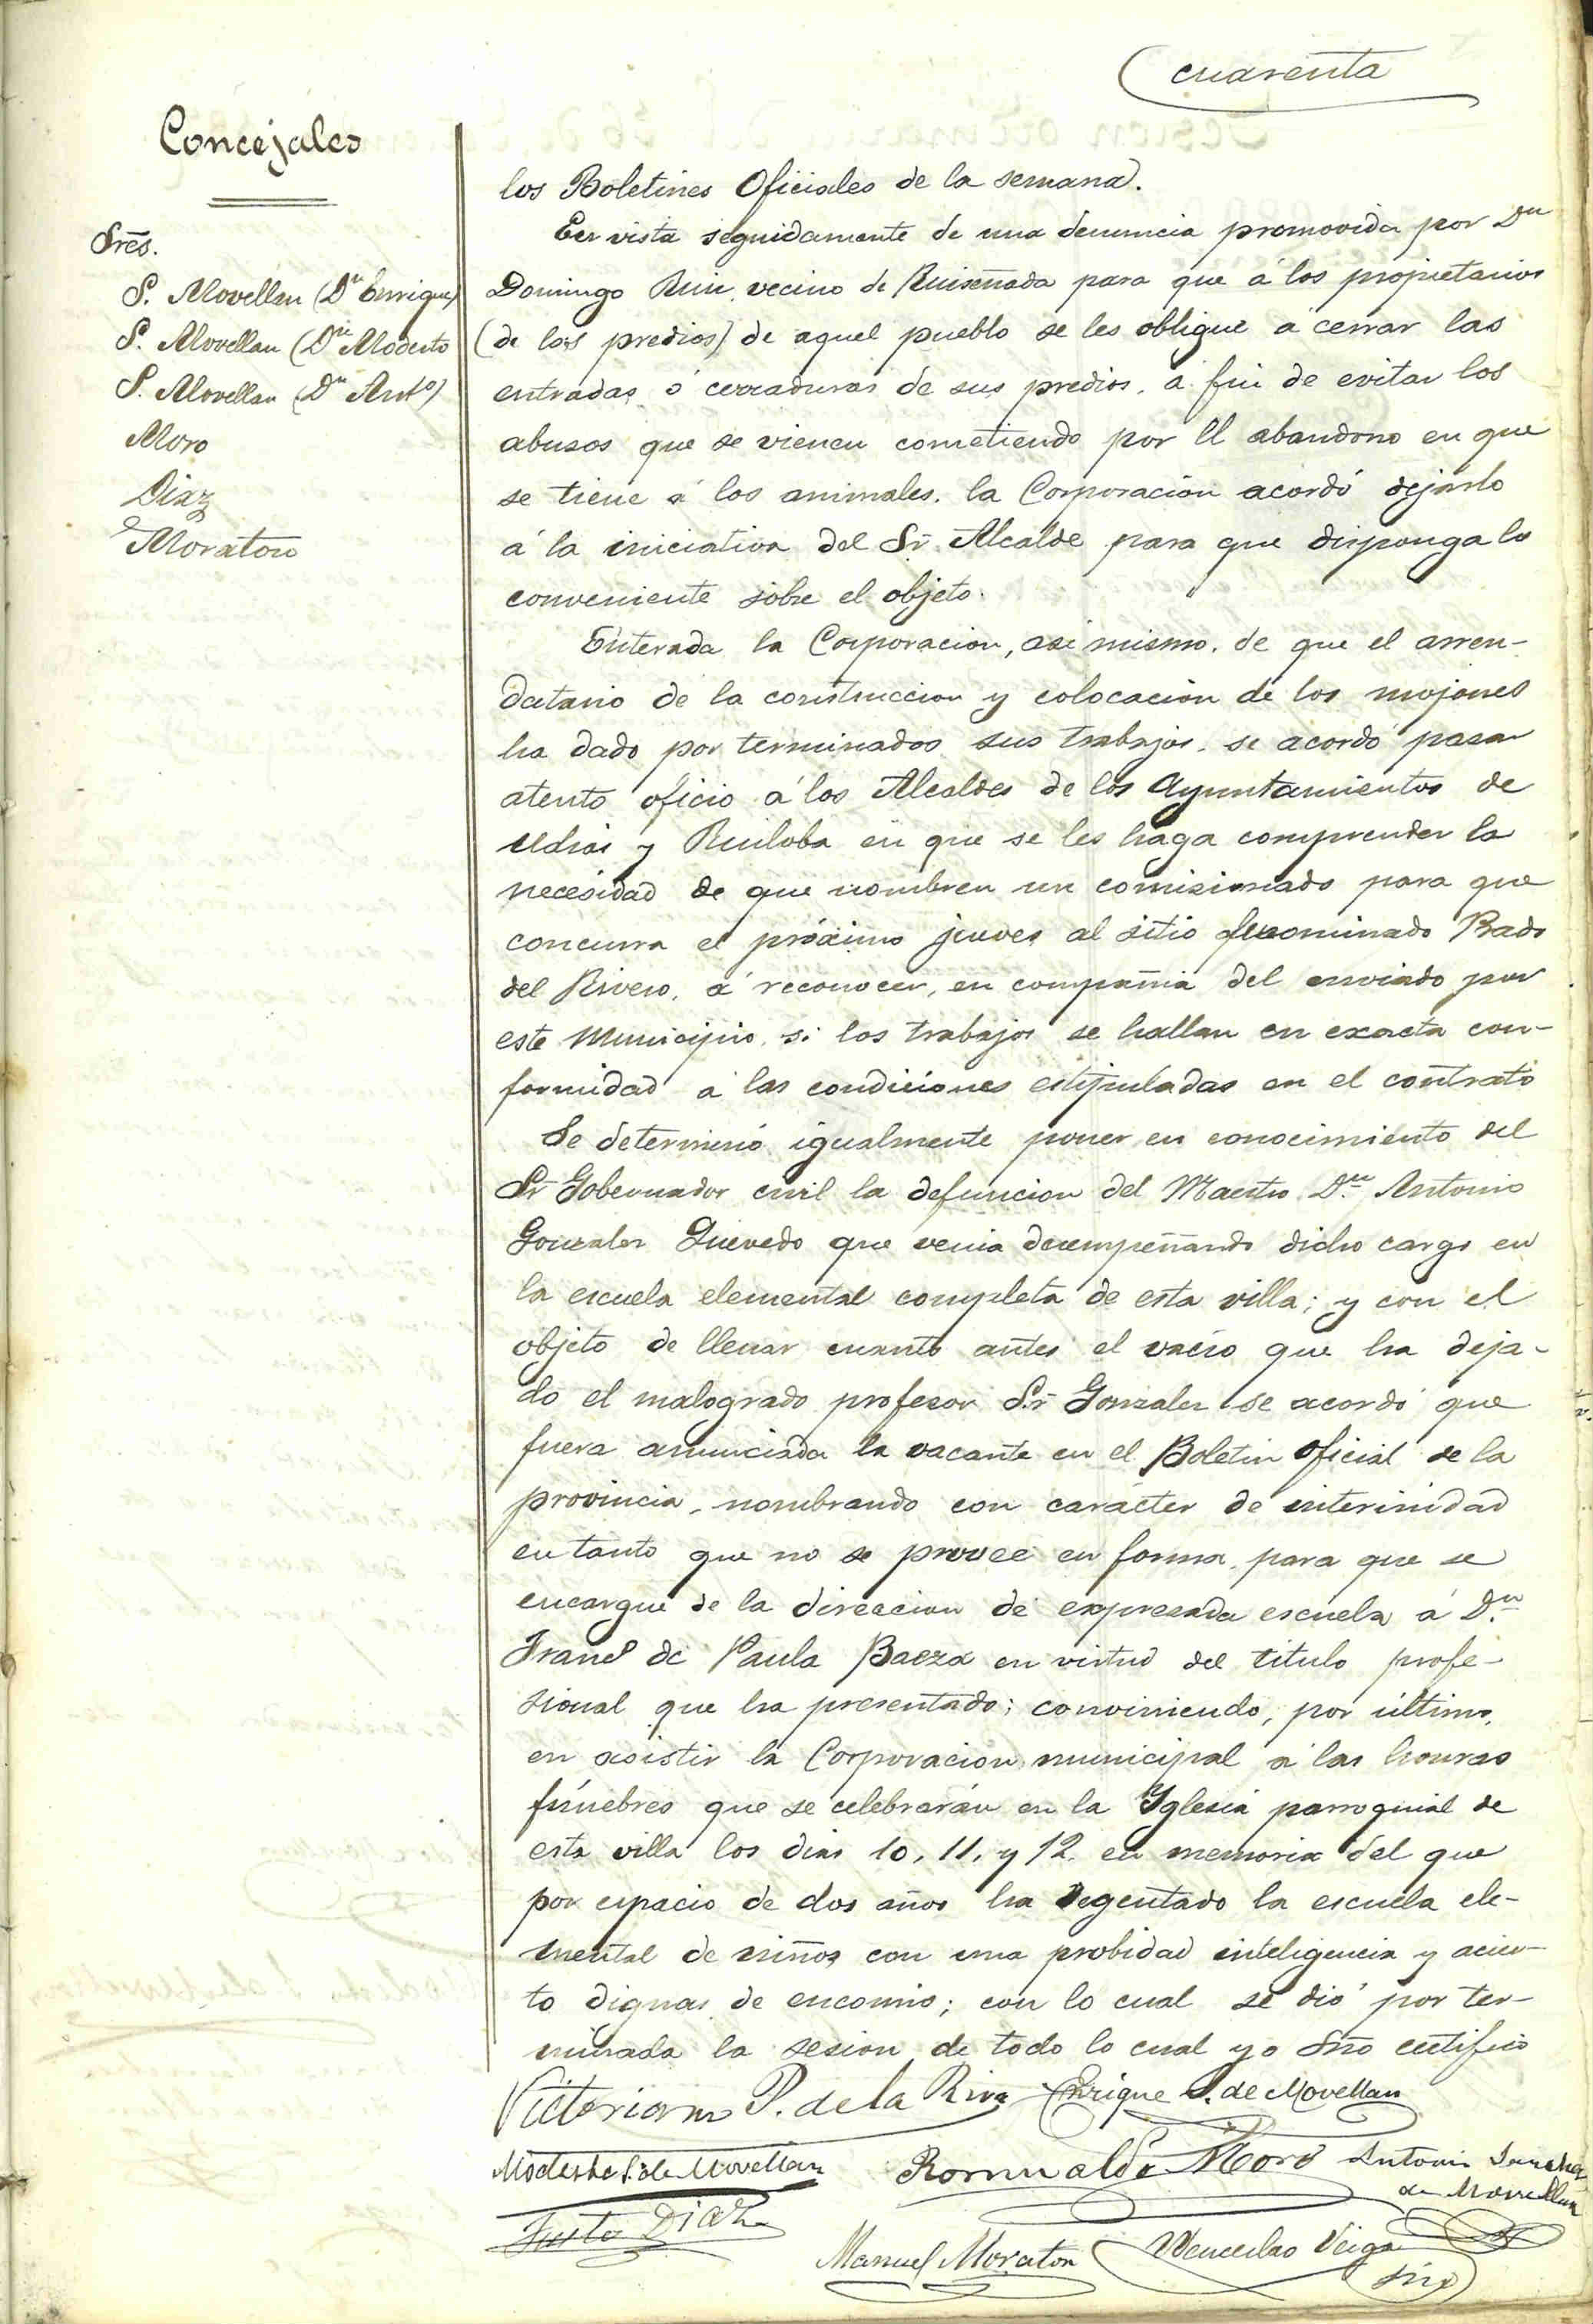 cuarenta
Concejales
Sres.
S. Movellan (Dn Enrique)
S. Movellan (Dn Modesto
S. Movellan (Dn Anto)
Moro
Diaz
Moraton
los Boletines Oficiales de la semana.
En vista seguidamente de una denuncia promovida por Dn
Domingo Ruiz, vecino de Ruiseñada para que á los propietarios
(de los predios) de aquel pueblo se les obligue á cerrar las
entradas ó cerraduras de sus predios, a fin de evitar los
abusos que se vienen cometiendo por el abandono en que
se tiene á los animales, la Corporacion acordó dejarlo
á la iniciativa del Sr. Alcalde para que disponga lo
conveniente sobre el objeto.
Enterada la Corporacion, asi mismo, de que el arren-
datario de la construccion y colocacion de los mojones
ha dado por terminados sus trabajos, se acordó pasar
atento oficio á los Alcaldes de los Ayuntamientos de
Udias y Ruiloba en que se les haga comprender la
necesidad de que nombren un comisionado para que
concurra el próximo jueves al sitio denominado Rado
del Rivero, á reconocer, en compañia del enviado por
este Municipio, si los trabajos se hallan en exacta con-
formidad á las condiciones estipuladas en el contrato
Se determinó igualmente poner en conocimiento del
Sr Gobernador civil la defuncion del Maestro Dn Antonio
Gonzalez Quevedo que venia desempeñando dicho cargo en
la escuela elemental completa de esta villa; y con el
objeto de llenar cuanto antes el vacio que ha deja-
do el malogrado profesor Sr Gonzalez se acordó que
fuera anunciada la vacante en el Boletin oficial de la
provincia, nombrando con carácter de interinidad
en tanto que no se provee en forma, para que se
encargue de la direccion de expresada escuela á Dn
Franco de Paula Baeza en virtud del titulo profe-
sional que ha presentado; conviniendo, por último,
en asistir la Corporacion municipal á las honras
fúnebres que se celebrarán en la Yglesia parroquial de
esta villa los dias 10, 11, y 12, en memoria del que
por espacio de dos años ha regentado la escuela ele-
mental de niños con una probidad inteligencia y acier-
to dignas de encomio; con lo cual se dió por ter-
minada la sesion de todo lo cual yo Srio certifico
Victoriano P. de la Riva Enrique S. de Movellan
Modesto S. de Movellan Romualdo Moro Antonio Sanchez
de Movellan
Justo Diaz
Manuel Moraton Wenceslao Veiga
Srio